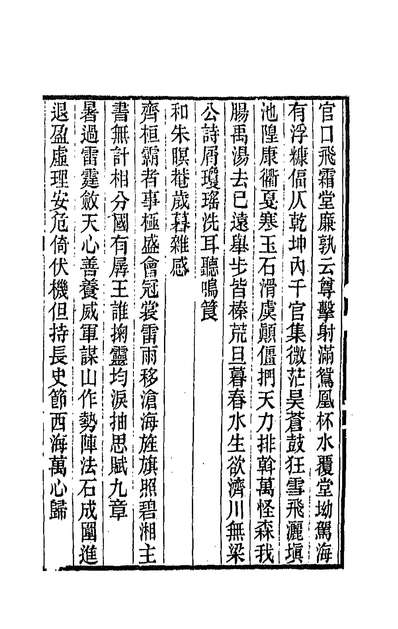 官口飛霜堂廉孰云尊擊射滿鴛凰杯水覆堂坳駕海
有浮糠偪仄乾坤內千官集微茫昊蒼鼓狂雪飛灑塡
池隍康衢夏寒玉石滑虞顚僵捫天力排斡萬怪森我
腸禹湯去已遠舉步皆榛荒旦暮春水生欲濟川無梁
公詩屑瓊瑤洗耳聽鳴篁
和朱暝菴歲暮雜感
齊桓霸者事極盛會冠裳雷雨移滄海旌旗照碧湘主
書無計相分國有孱王誰掬靈均淚抽思賦九章
暑過雷霆斂天心善養威軍謀山作勢陣法石成圍進
退盈虛理安危倚伏機但持長史節西海萬心歸